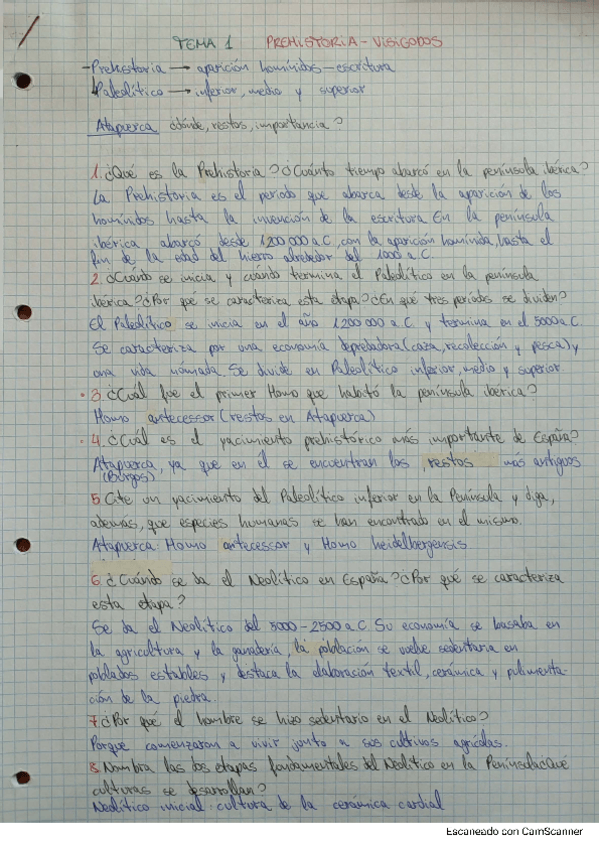 TEMA 1 PREHISTORIA - VISIGODOS
- Prehistoria → aparición homínidos - escritura
Paleolítico → inferior, medio y superior
Atapuerca ¿dónde, restos, importancia?
1. ¿Qué es la Prehistoria? ¿Cuánto tiempo abarcó en la península ibérica?
La Prehistoria es el período que abarca desde la aparición de los
homínidos hasta la invención de la escritura. En la península
ibérica, abarcó desde 1200 000 a.C, con la aparición homínida, hasta el
fin de la edad del hierro alrededor del 1000 a.C.
2. ¿Cuándo se inicia y cuándo termina el Paleolítico en la península
ibérica? ¿Por qué se caracteriza esta etapa? ¿En qué tres períodos se dividen?
El Paleolítico se inicia en el año 1200 000 a.C y termina en el 5000 a.C.
Se caracteriza por una economía depredadora (caza, recolección y pesca) y
una vida nómada. Se divide en Paleolítico inferior, medio y superior.
• 3. ¿Cuál fue el primer Homo que habitó la península ibérica?
Homo antecessor (restos en Atapuerca)
• 4. ¿Cuál es el yacimiento prehistórico más importante de España?
Atapuerca, ya que en el se encuentran los restos más antiguos
(Burgos)
5 Cite un yacimiento del Paleolítico inferior en la Península y diga,
además, que especies humanas se han encontrado en el mismo.
Atapuerca: Homo antecessor y Homo heidelbergensis
6. ¿Cuándo se da el Neolítico en España? ¿Por qué se caracteriza
esta etapa?
Se da el Neolítico del 5000 - 2500 a.C Su economía se basaba en
la agricultura y la ganadería, la población se vuelve sedentaria en
poblados estables y destaca la elaboración textil, cerámica y pulimenta-
ción de la piedra.
7 ¿Por qué el hombre se hizo sedentario en el Neolítico?
Porque comenzaron a vivir junto a sus cultivos agrícolas.
8. Nombra las dos etapas fundamentales del Neolítico en la Península ¿Qué
culturas se desarrollan?
Neolítico inicial: cultura de la cerámica cardial
Escaneado con CamScanner